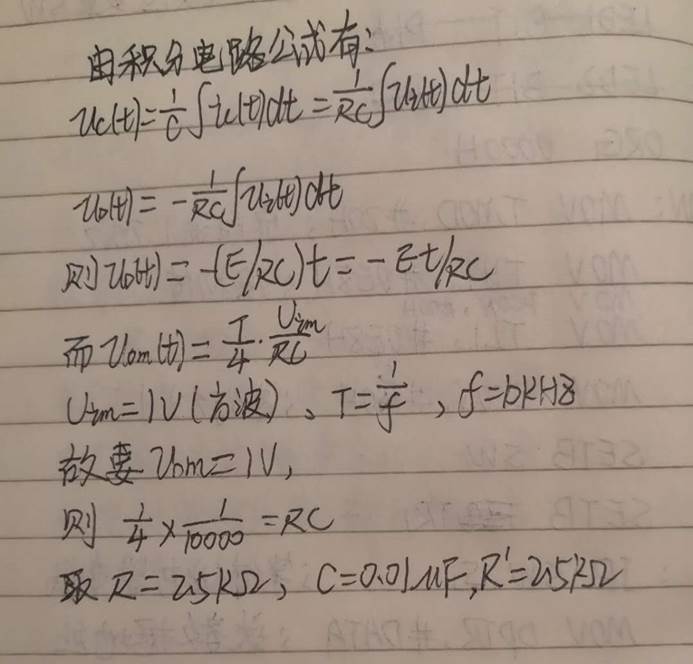 由积分电路公式有:
uc(t)=1/C∫ic(t)dt=1/RC∫ui(t)dt
uo(t)=-1/RC∫ui(t)dt
则uo(t)=-(E/RC)t=-Et/RC
而Uom(t)=T/4·Uim/RC
Uim=1V(方波)、T=1/f,f=10KHz
故要Uom=1V,
则 1/4×1/10000=RC
取R=2.5kΩ,C=0.01uF,R'=2.5kΩ